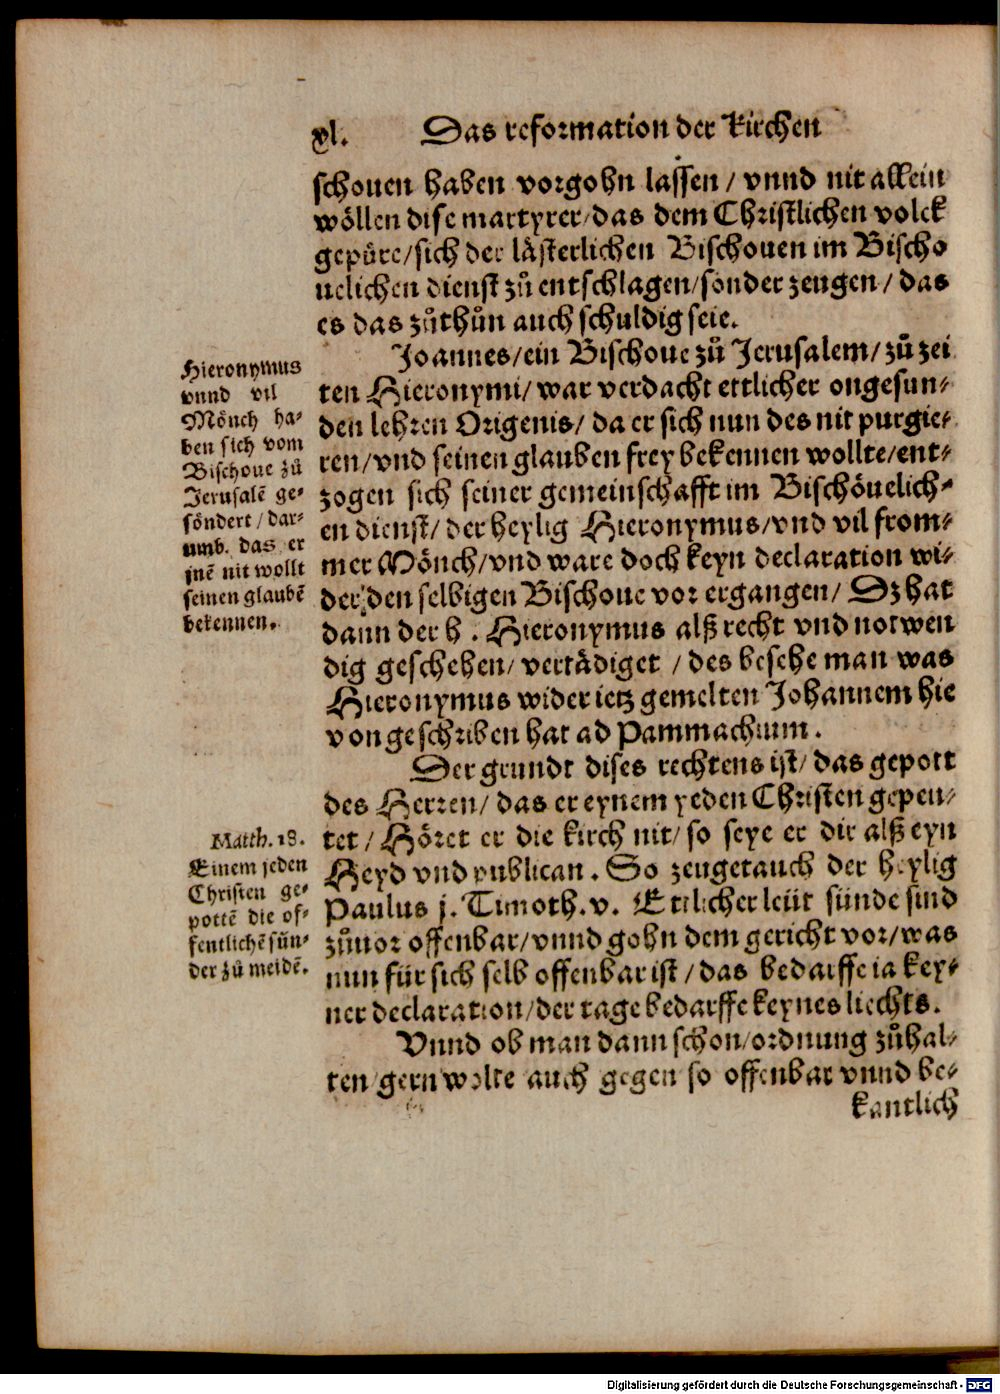 xl. Das reformation der kirchen
schouen haben vorgohn lassen / vnnd nit allein
wöllen dise martyrer / das dem Christlichen volck
gepüre / sich der lästerlichen Bischouen im Bischo
uelichen dienst zů entschlagen / sonder zeugen / das
es das zůthůn auch schuldig seie.
Joannes / ein Bischoue zů Jerusalem / zů zei
ten Hieronymi / war verdacht ettlicher ongesun-
den lehren Origenis / da er sich nun des nit purgie-
ren / vnd seinen glauben frey bekennen wollte / ent-
zogen sich seiner gemeinschafft im Bischöuelich-
en dienst / der heylig Hieronymus / vnd vil from-
mer Mönch / vnd ware doch keyn declaration wi-
der den selbigen Bischoue vor ergangen / Dz hat
dann der h. Hieronymus alß recht vnd notwen
dig geschehen / vertädiget / des besehe man was
Hieronymus wider ietz gemelten Johannem hie
von geschriben hat ad Pammachium.
Der grundt dises rechtens ist / das gepott
des Herren / das er eynem yeden Christen gepeu-
tet / Höret er die kirch nit / so seye er dir alß eyn
Heyd vnd publican. So zeuget auch der heylig
Paulus j. Timoth. v. Ettlicher leüt sünde sind
zůuor offenbar / vnnd gohn dem gericht vor / was
nun für sich selb offenbar ist / das bedarffe ia key-
ner declaration / der tage bedarffe keynes liechts.
Vnnd ob man dann schon / ordnung zůhal-
ten / gern wolte auch gegen so offenbar vnnd be-
kantlich
Hieronymus
vnnd vil
Mönch ha-
ben sich vom
Bischoue zů
Jerusalē ge-
söndert / dar-
umb. das er
jnē nit wollt
seinen glaubē
bekennen.
Matth. 18.
Einem jeden
Christen ge-
pottē die of-
fentlichē sün-
der zů meidē.
Digitalisierung gefördert durch die Deutsche Forschungsgemeinschaft - DFG